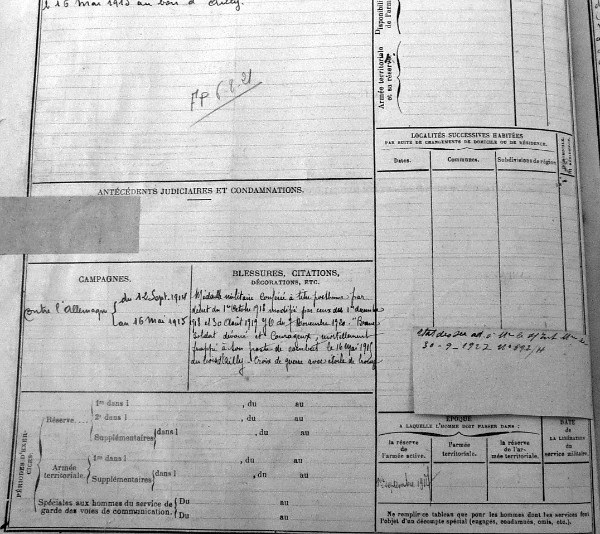 le 16 mai 1915 au bois d'Ailly.
FP 6.8.21
ANTÉCÉDENTS JUDICIAIRES ET CONDAMNATIONS.
CAMPAGNES.
contre l'Allemagne
du 12 Sept. 1914
au 16 Mai 1915
BLESSURES, CITATIONS,
DÉCORATIONS, ETC.
Médaille militaire conférée à titre posthume par
1er Octobre 1918 modifié par ceux des 1er
et 30 Août 1917 7 Novembre 1920. "Brave
Soldat dévoué et Courageux, mortellement
frappé à son poste de combat le 16 Mai 1915
au bois d'Ailly Croix de guerre avec étoile de bronze
PÉRIODES D'EXERCICES.
Réserve
1re dans l , du au
2e dans l , du au
Supplémentaires dans l , du au
Armée
territoriale.
1re dans l , du au
Supplémentaires dans l , du au
Spéciales aux hommes du service de
garde des voies de communication.
Du au
Du au
Disponibilité
de l'armée
Armée territoriale
et sa réserve
LOCALITÉS SUCCESSIVES HABITÉES
PAR SUITE DE CHANGEMENTS DE DOMICILE OU DE RÉSIDENCE.
Dates.
Communes.
Subdivisions de région
30-9-1922 N° 892/H
ÉPOQUE
A LAQUELLE L'HOMME DOIT PASSER DANS :
la réserve
de l'armée active.
l'armée
territoriale.
la réserve
de l'ar-
mée territoriale.
DATE
de
LA LIBÉRATION
du
service militaire.
Ne remplir ce tableau que pour les hommes dont les services font
l'objet d'un décompte spécial (engagés, condamnés, omis, etc.)